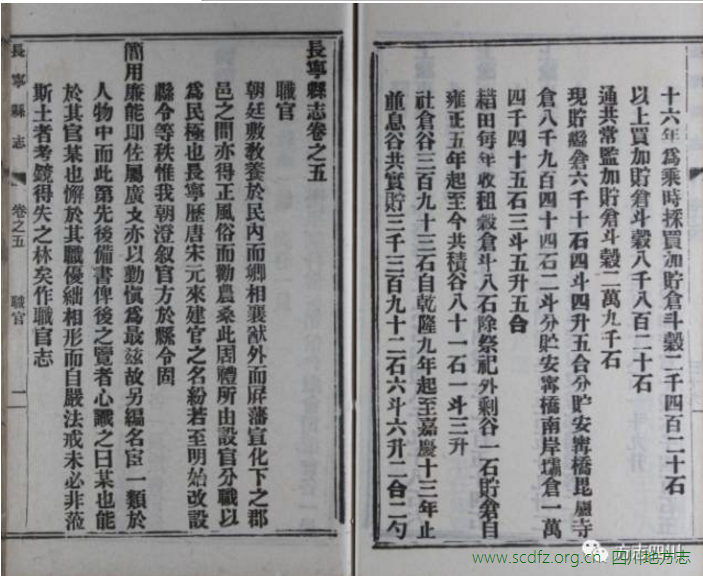 十六年爲乘時採買加貯倉斗穀二千四百二十石
以上買加貯倉斗穀八千八百二十石
通共常監加貯倉斗穀二萬九千石
現貯鹽倉六千十石四斗四升五合分貯安寧橋毘盧寺
倉八千九百四十四石二斗分貯安寧橋南岸壩倉一萬
四千四十五石三斗五升五合
耤田每年收租穀倉斗八石除祭祀外剩谷一石貯倉自
雍正五年起至今共積谷八十一石一斗三升
社倉谷三百九十三石自乾隆九年起至嘉慶十三年止
並息谷共實貯三千三百九十二石六斗六升二合二勺
長寧縣志卷之五
職官
朝廷敷敎養於民內而卿相襄猷外而屛藩宣化下之郡
邑之間亦得正風俗而勸農桑此周禮所由設官分職以
爲民極也長寧歷唐宋元來建官之名紛若至明始改設
縣令等秩惟我朝澄叙官方於縣令固
簡用廉能即佐屬廣文亦以勤愼爲最玆故另編名宦一類於
人物中而此第先後備書俾後之覽者心識之曰某也能
於其官某也懈於其職優絀相形而自嚴法戒未必非蒞
斯土者考鏡得失之林矣作職官志
長寧縣志
卷之五
職官
一
方志四川
www.scdfz.org.cn 四川地方志